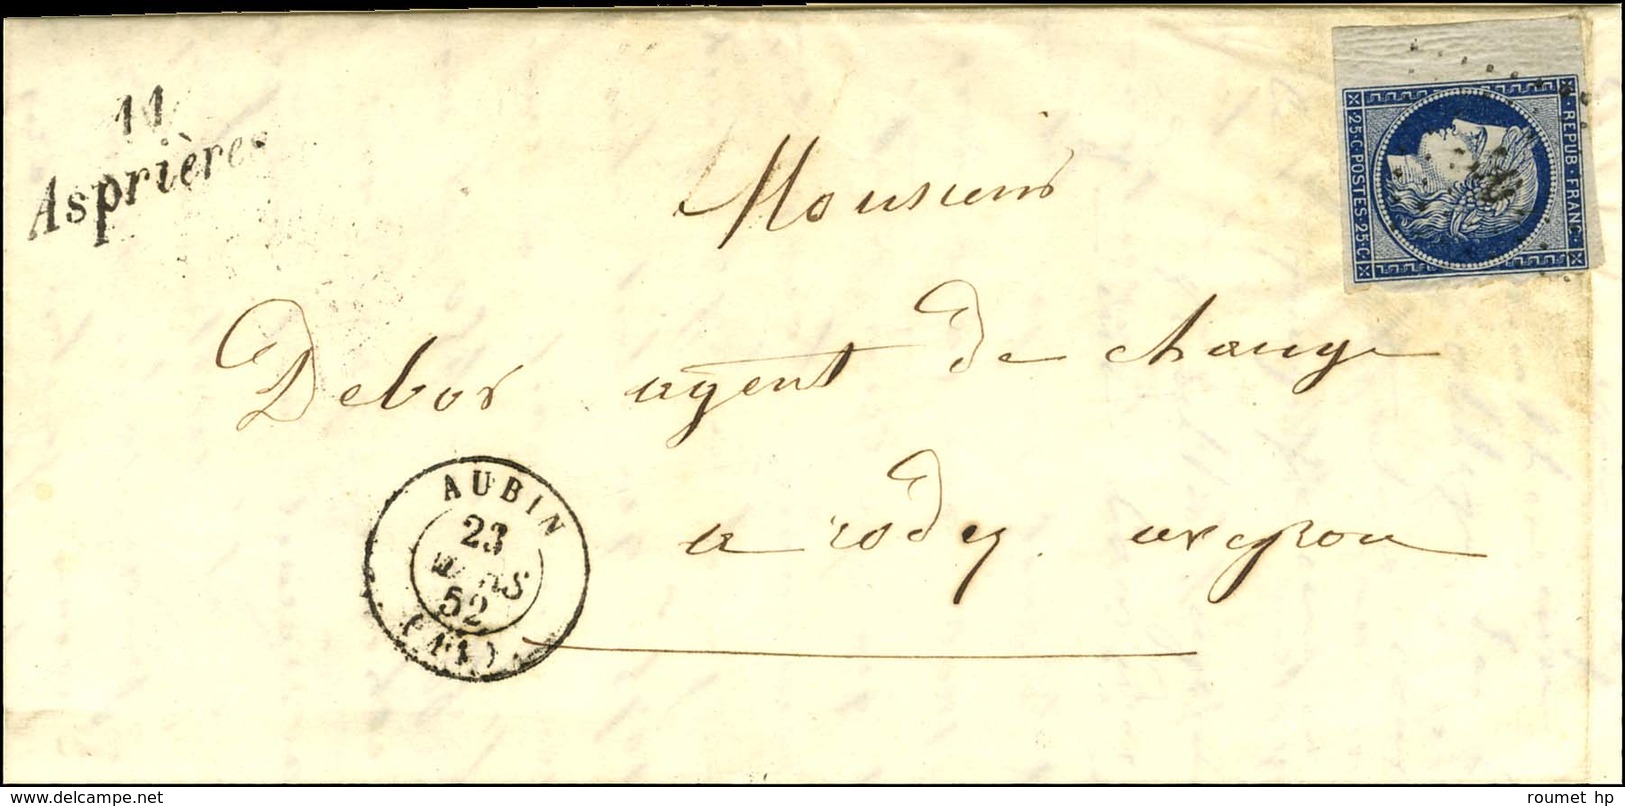 11
Asprières
25·C·POSTES·25·C
REPUB·FRANC·
Monsieur
Debos agent de change
a rodez aveyron
AUBIN
23
MARS
52
(11)
roumet hp